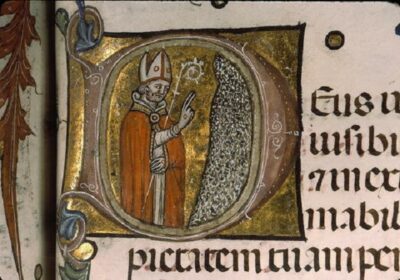 DEus i
uisibi
⁊ inex
mabil
pietatem tuam per